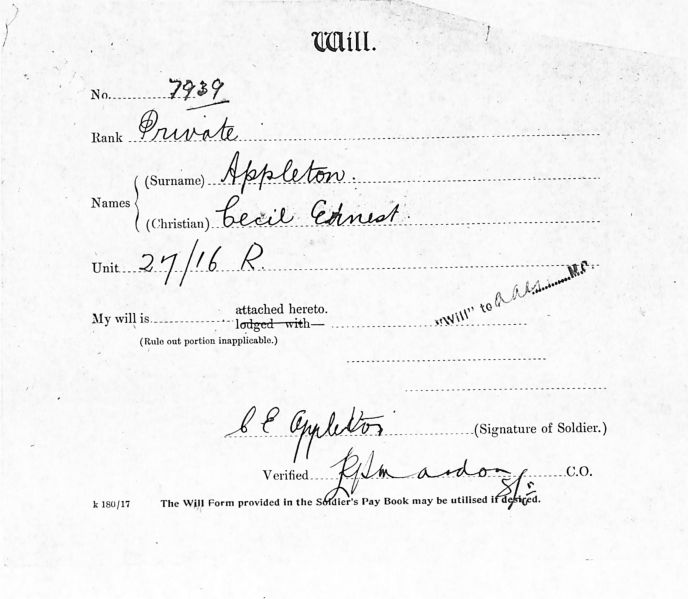 Will.
No. 7939
Rank Private
Names
(Surname) Appleton.
(Christian) Cecil Ernest.
Unit 27/16 R.
"Will" to M.C.
My will is attached hereto.
lodged with
(Rule out portion inapplicable.)
C E Appleton (Signature of Soldier.)
Verified C.O.
k 180/17 The Will Form provided in the Soldier's Pay Book may be utilised if desired.